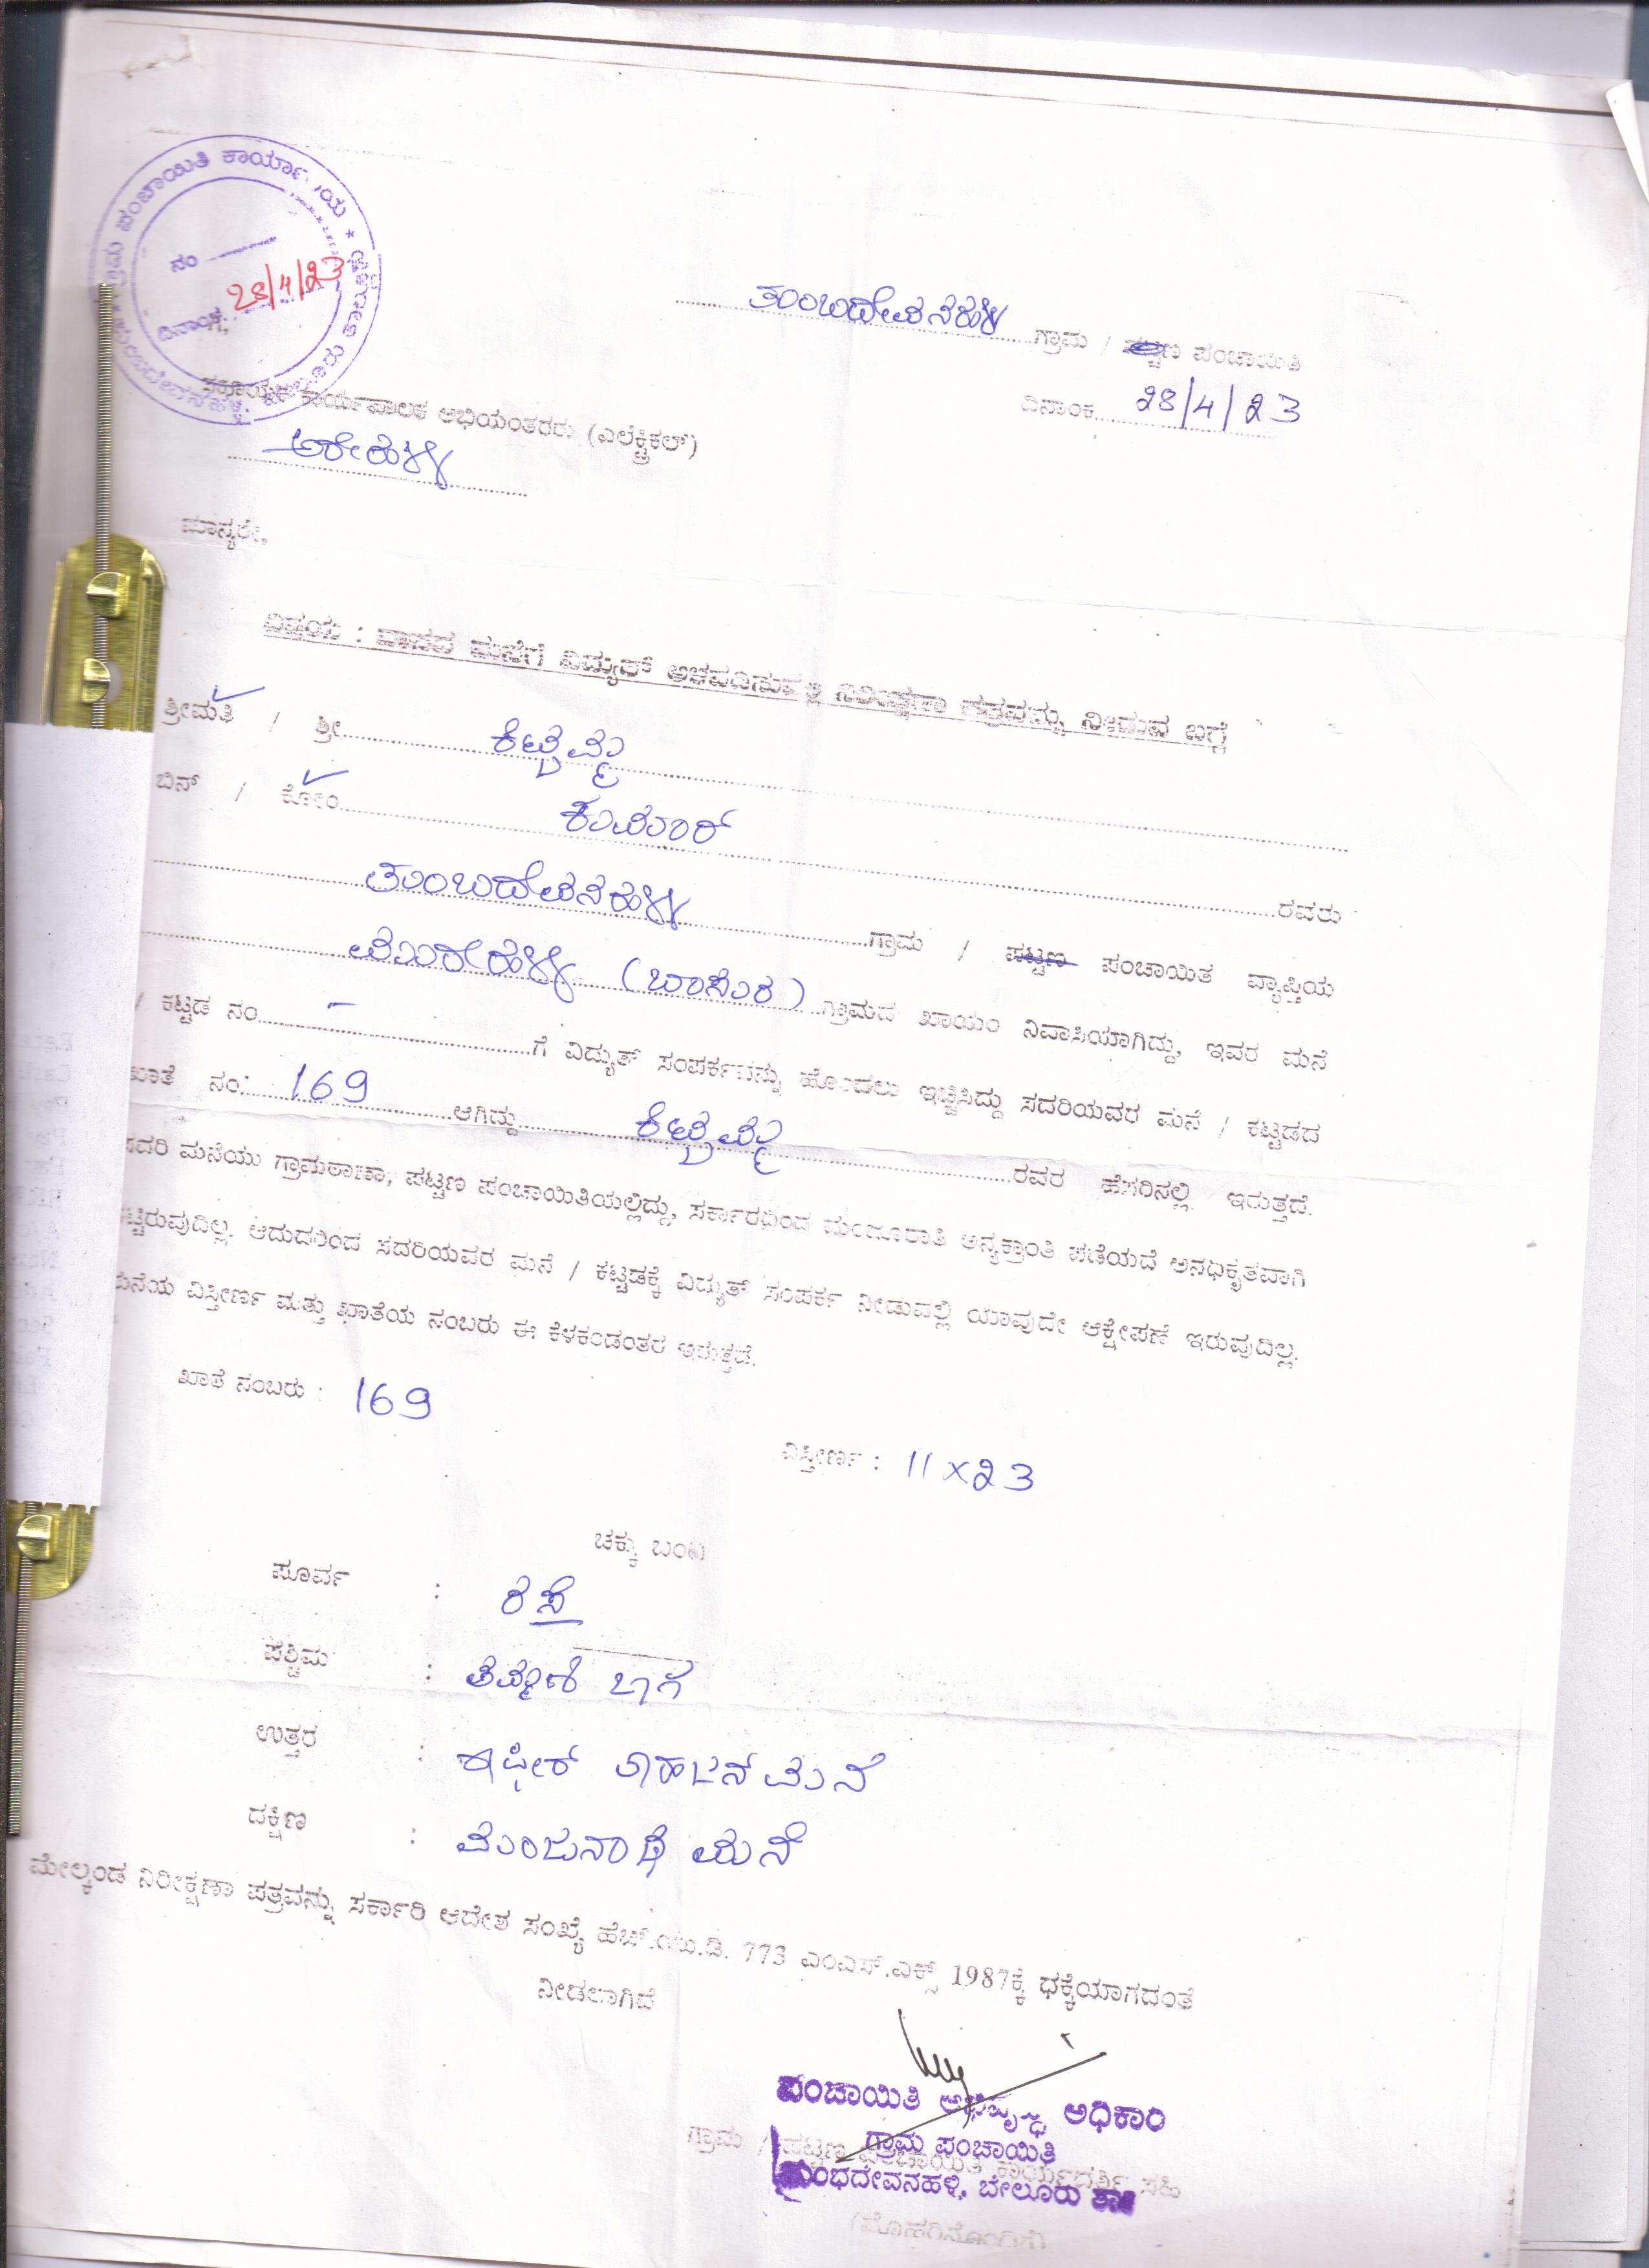 ಗ್ರಾಮ ಪಂಚಾಯಿತಿ
ನಂ
ದಿನಾಂಕ 28/4/23
ತುಂಬದೇವನಹಳ್ಳಿ ಗ್ರಾಮ / ಪಟ್ಟಣ ಪಂಚಾಯಿತಿ
ದಿನಾಂಕ 28/4/23
ಗೆ,
ಸಹಾಯಕ ಕಾರ್ಯಪಾಲಕ ಅಭಿಯಂತರರು (ಎಲೆಕ್ಟ್ರಿಕಲ್)
ಅರೇಹಳ್ಳಿ
ಮಾನ್ಯರೇ,
ವಿಷಯ : ವಾಸದ ಮನೆಗೆ ವಿದ್ಯುತ್ ನಿರೀಕ್ಷಣಾ ಪತ್ರವನ್ನು ನೀಡುವ ಬಗ್ಗೆ
ಶ್ರೀಮತಿ / ಶ್ರೀ
ಬಿನ್ / ಕೋಂ ಕುಮಾರ್ ರವರು
ತುಂಬದೇವನಹಳ್ಳಿ ಗ್ರಾಮ / ಪಟ್ಟಣ ಪಂಚಾಯಿತ ವ್ಯಾಪ್ತಿಯ
ಗ್ರಾಮದ ಖಾಯಂ ನಿವಾಸಿಯಾಗಿದ್ದು, ಇವರ ಮನೆ
/ ಕಟ್ಟಡ ನಂ - ಗೆ ವಿದ್ಯುತ್ ಸಂಪರ್ಕವನ್ನು ಹೊಂದಲು ಇಚ್ಛಿಸಿದ್ದು ಸದರಿಯವರ ಮನೆ / ಕಟ್ಟಡದ
ಖಾತೆ ನಂ: 169 ಆಗಿದ್ದು ರವರ ಹೆಸರಿನಲ್ಲಿ ಇರುತ್ತದೆ.
ಸದರಿ ಮನೆಯು ಗ್ರಾಮಠಾಣಾ, ಪಟ್ಟಣ ಪಂಚಾಯಿತಿಯಲ್ಲಿದ್ದು, ಸರ್ಕಾರದಿಂದ ಮಂಜೂರಾತಿ ಅನ್ಯಕ್ರಾಂತಿ ಪಡೆಯದೆ ಅನಧಿಕೃತವಾಗಿ
ಕಟ್ಟಿರುವುದಿಲ್ಲ. ಆದುದರಿಂದ ಸದರಿಯವರ ಮನೆ / ಕಟ್ಟಡಕ್ಕೆ ವಿದ್ಯುತ್ ಸಂಪರ್ಕ ನೀಡುವಲ್ಲಿ ಯಾವುದೇ ಆಕ್ಷೇಪಣೆ ಇರುವುದಿಲ್ಲ.
ಮನೆಯ ವಿಸ್ತೀರ್ಣ ಮತ್ತು ಖಾತೆಯ ನಂಬರು ಈ ಕೆಳಕಂಡಂತರ ಇರುತ್ತದೆ.
ಖಾತೆ ನಂಬರು : 169
ವಿಸ್ತೀರ್ಣ : 11 x 23
ಚಕ್ಕು ಬಂದಿ
ಪೂರ್ವ : ರಸ್ತೆ
ಪಶ್ಚಿಮ :
ಉತ್ತರ : ಮನೆ
ದಕ್ಷಿಣ : ಮಂಜುನಾಥ ಮನೆ
ಮೇಲ್ಕಂಡ ನಿರೀಕ್ಷಣಾ ಪತ್ರವನ್ನು ಸರ್ಕಾರಿ ಆದೇಶ ಸಂಖ್ಯೆ ಹೆಚ್.ಯು.ಡಿ. 773 ಎಂಎಸ್.ಎಕ್ಸ್ 1987ಕ್ಕೆ ಧಕ್ಕೆಯಾಗದಂತೆ
ನೀಡಲಾಗಿದೆ
ಪಂಚಾಯಿತಿ ಅಭಿವೃದ್ಧಿ ಅಧಿಕಾರಿ
ಗ್ರಾಮ ಪಂಚಾಯಿತಿ
ತುಂಭದೇವನಹಳ್ಳಿ, ಬೇಲೂರು ತಾ||
ಗ್ರಾಮ / ಪಟ್ಟಣ ಪಂಚಾಯಿತಿ ಕಾರ್ಯದರ್ಶಿ ಸಹಿ
(ಮೊಹರಿನೊಂದಿಗೆ)